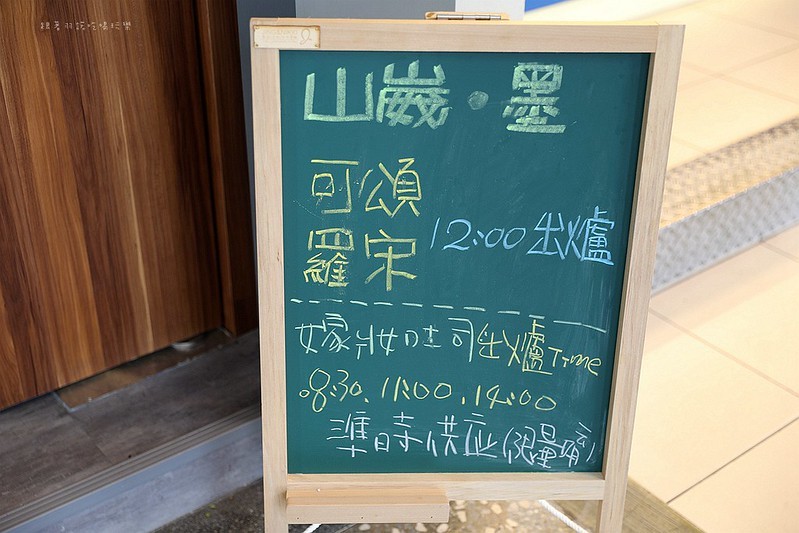 跟著羽諾吃喝玩樂
山崴·墨
可頌
羅宋
12:00出爐
嫁妝吐司出爐Time
8:30、11:00、14:00
準時供應(限量唷)